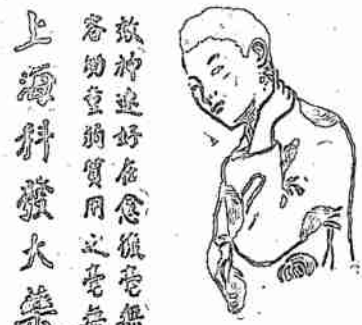 效神速好在愈後毫無
容幼童弱質用之毫無
上海科發大藥